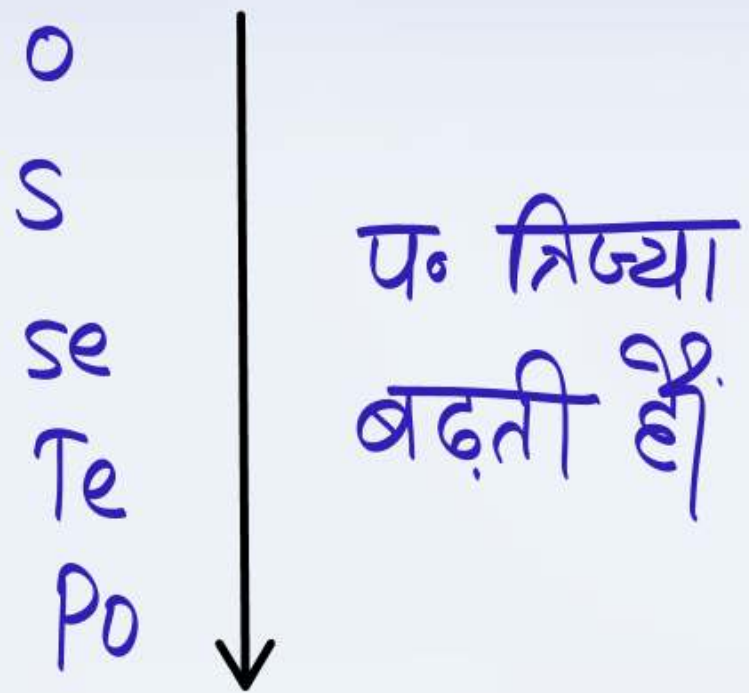 O
S
se
Te
Po
प॰ त्रिज्या
बढ़ती हैं